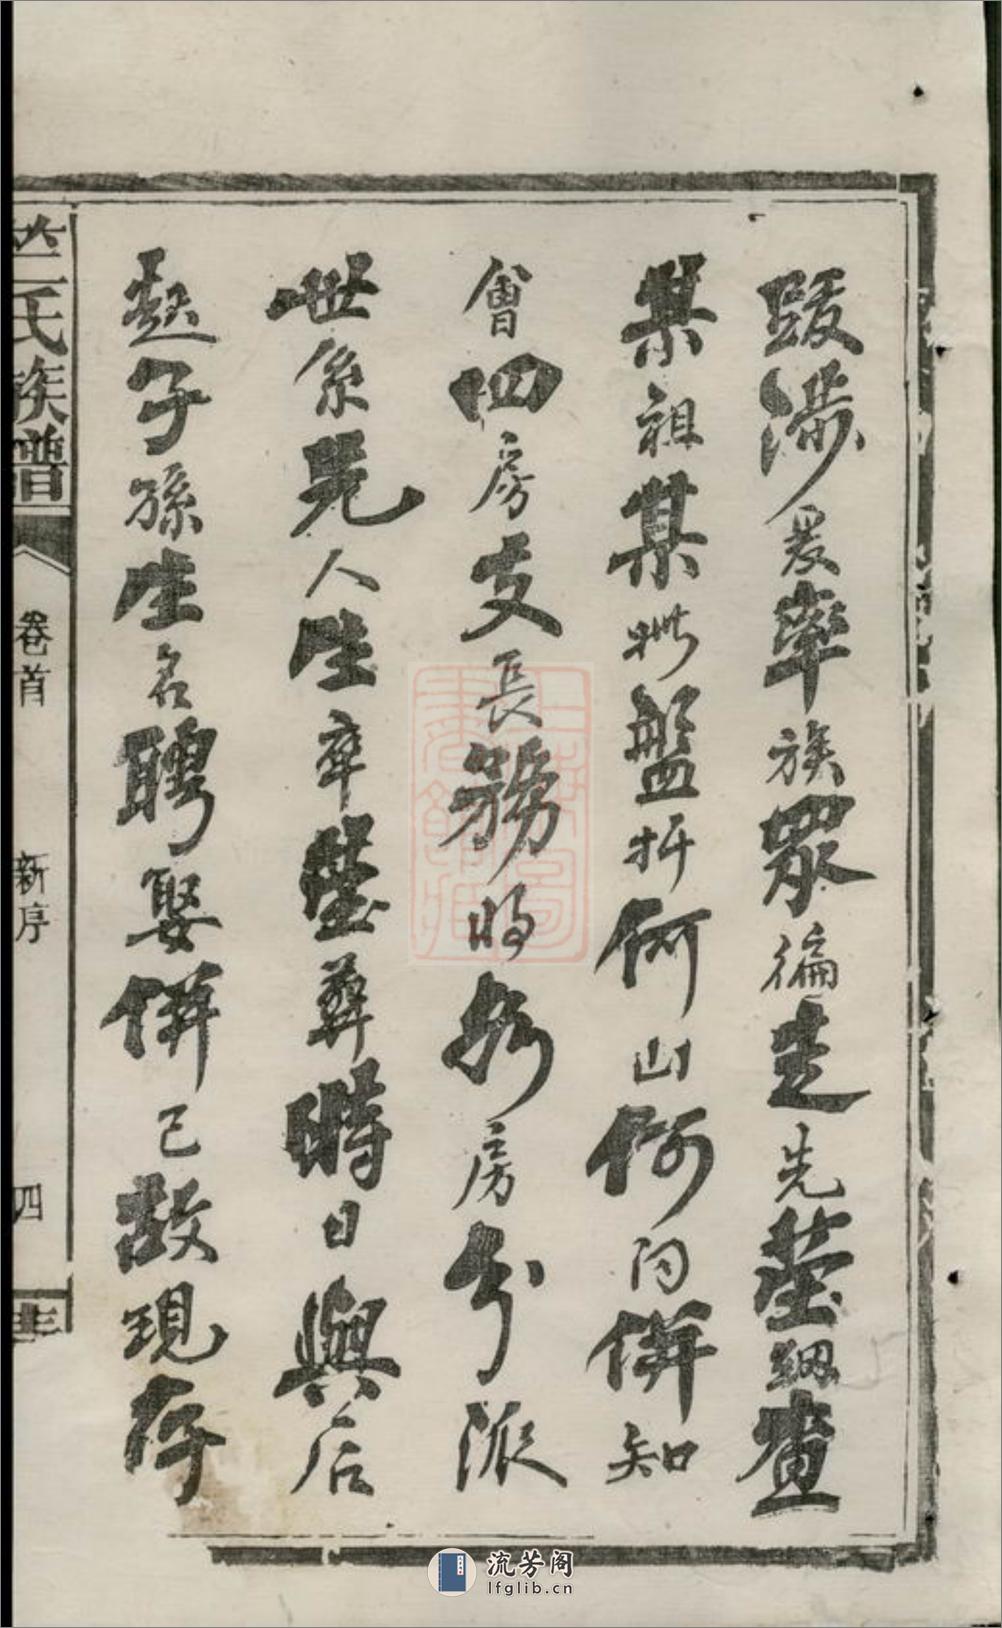 跋涉爰率族眾徧走先塋細查
某祖某某妣盤扦何山何向併知
會四房支長務將各房分派
世系先人生卒塋葬時日與后
起子孫生名聘娶併已故現存
竺氏族譜 卷首 新序 四
流芳阁
lfglib.cn